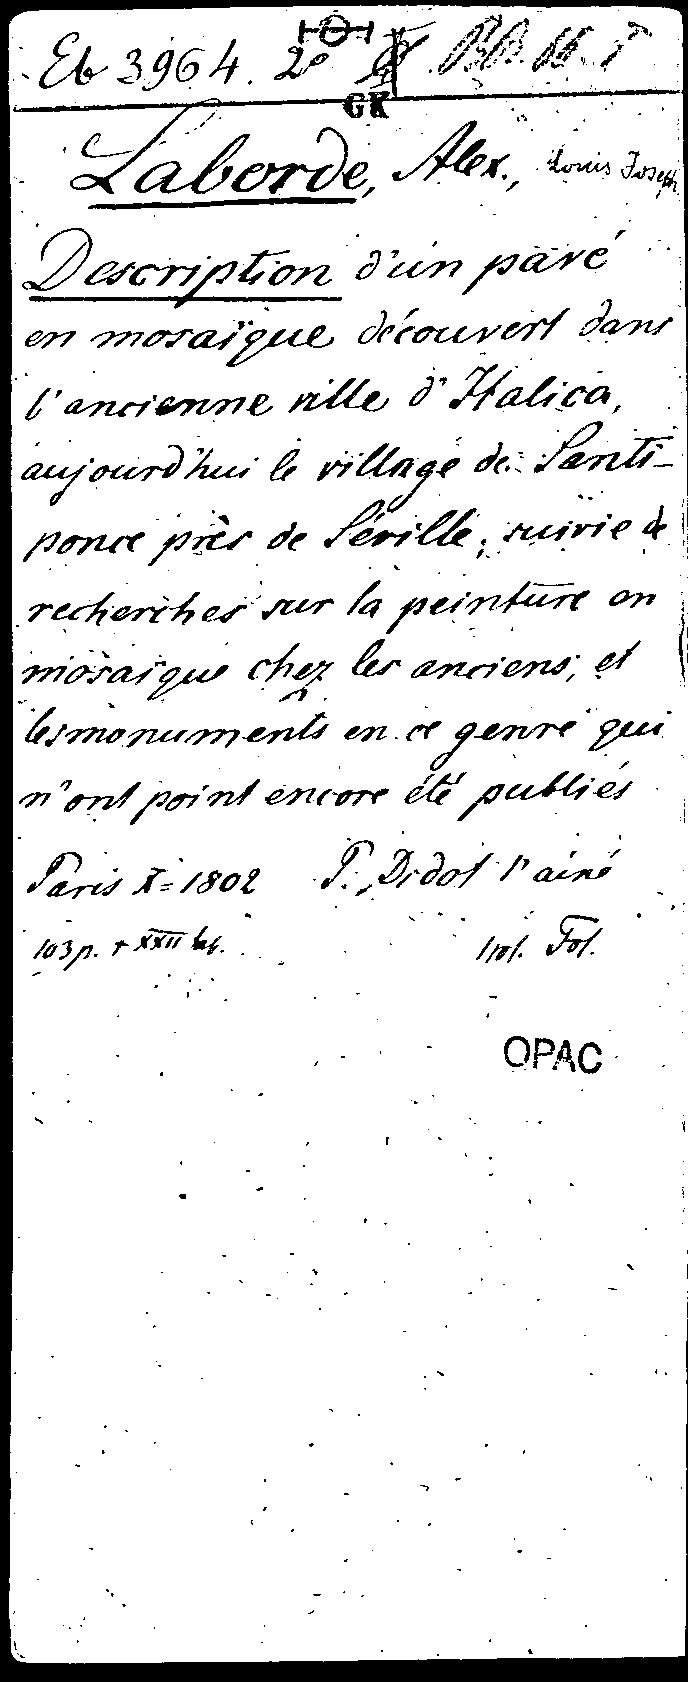 Eb 3964. 2°
GK
Laborde, Alex., Louis Joseph
Description d'un pavé
en mosaïque découvert dans
l'ancienne ville d'Italica,
aujourd'hui le village de Santi-
ponce près de Séville; suivie de
recherches sur la peinture en
mosaïque chez les anciens, et
les monuments en ce genre qui
n'ont point encore été publiés
Paris X = 1802 P. Didot l'ainé
103 p. + XXII
Fol.
OPAC